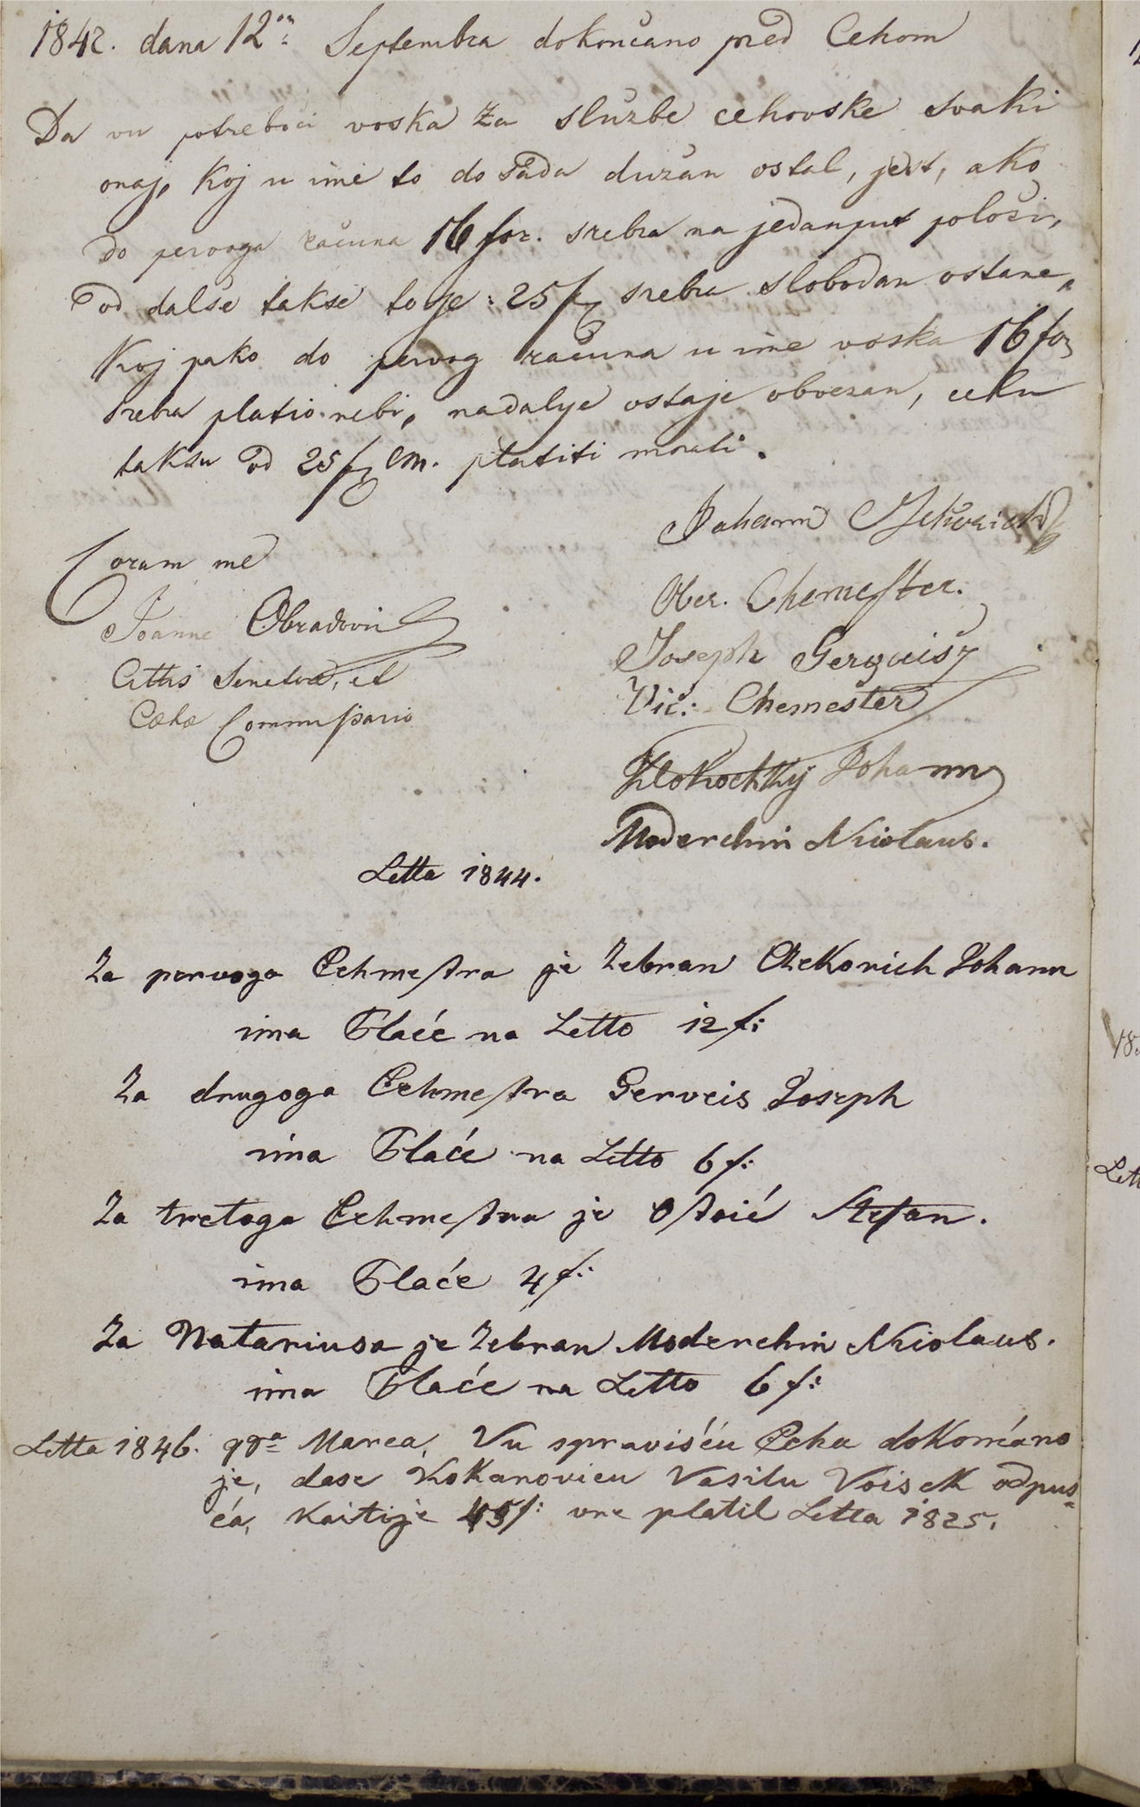 1842. dana 12on Septembra dokončano pred Cehom
Da vu potreboći voska za službe cehovske svaki
onaj, koj u ime to do sada dužan ostal, jest, ako
do pervoga računa 16 for. srebra na jedanput položi,
od dalše takse to je: 25 f srebra slobodan ostane,
Koj pako do pervog računa u ime voska 16 for
srebra platio nebi, nadalje ostaje obvezan, celu
taksu od 25 f CM. platiti morati.
Johann
Coram me
Ober. Chemester.
Joanne Obradovich
Joseph Gerweisz
Cittis Senatore, et
Vic: Chemester
Cehæ Commissario
Johann
Moderchin Nicolaus.
Letta 1844.
Za pervoga Cehmestra je zebran Czekovich Johann
ima Plaće na Letto 12 f:
Za drugoga Cehmestra Gerveis Joseph
ima Plaće na Letto 6 f:
Za tretoga Cehmestra je Ostoić Stefan.
ima Plaće 4 f:
Za Notariusa je zebran Moderchin Nicolaus.
ima Plaće na Letto 6 f:
Letta 1846. Marca, Vu spravišću Ceha dokončano
je, dase Kokanovicu Vasilu Voisek odpus=
ća, kaitije 45 f: vre platil Letta 1825.
18.
Lett